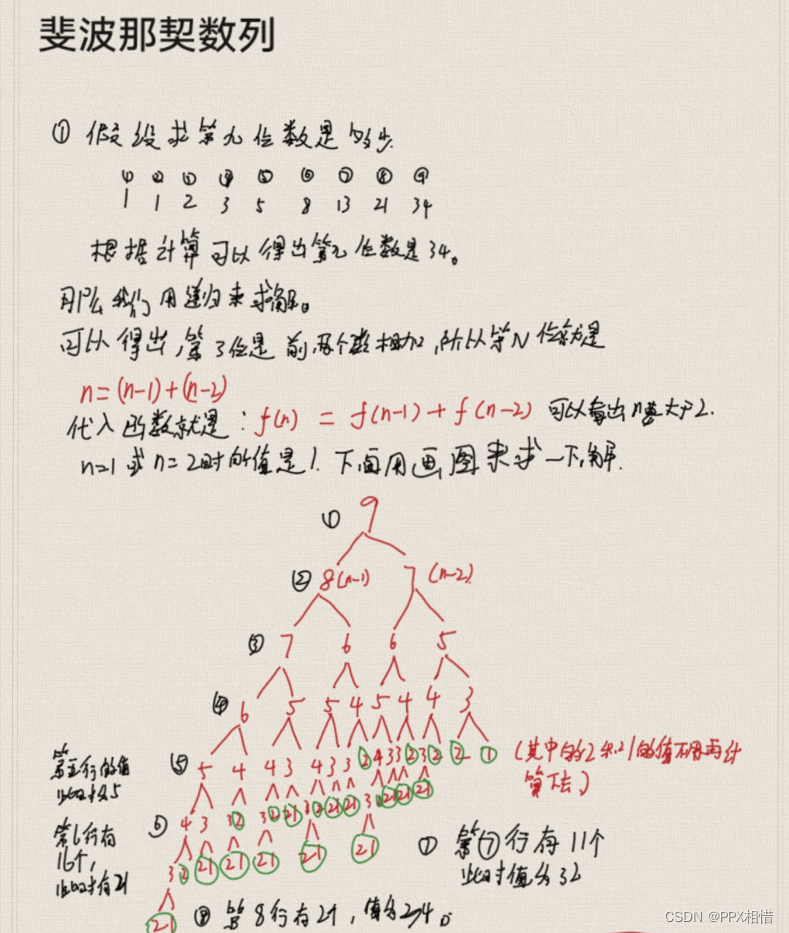 斐波那契数列
① 假设求第九位数是多少.
① ② ③ ④ ⑤ ⑥ ⑦ ⑧ ⑨
1 1 2 3 5 8 13 21 34
根据计算可以得出第九位数是34。
那么我们用递归来求解。
可以得出,第3位是前两个数相加,所以第N位就是
n=(n-1)+(n-2)
代入函数就是:f(n) = f(n-1)+f(n-2) 可以看出n要大于2.
n=1或n=2时的值是1.下面用画图来求一下解.
① 9
② 8(n-1) 7 (n-2)
③ 7 6 6 5
④ 6 5 5 4 5 4 4 3
第五行的值
此时为5
⑤ 5 4 4 3 4 3 3 2 4 3 3 2 3 2 2 1
(其中的2和1的值不用再计
算下去)
第6行有
16个,
此时有21
⑥ 4 3 3 2 3 2 2 1 3 2 2 1 2 1 3 2 2 1 2 1 2 1
3 2 2 1 2 1 2 1 2 1 2 1
⑦ 第⑦行有11个
此时值为32
2 1
⑧ 第8行有21,值为34。
CSDN @PPX相惜